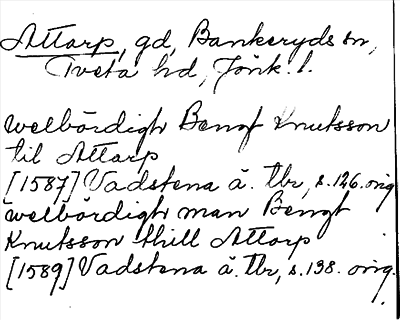 Attarp, gd, Bankeryds sn,
Tveta hd, Jönk. l.
welbördigh Bengt Knutsson
til Attarp
[1587] Vadstena ä. tbr, s. 126. orig
welbördigh man Bengt
Knutsson thill Attarp
[1589] Vadstena ä. tbr, s. 138. orig.